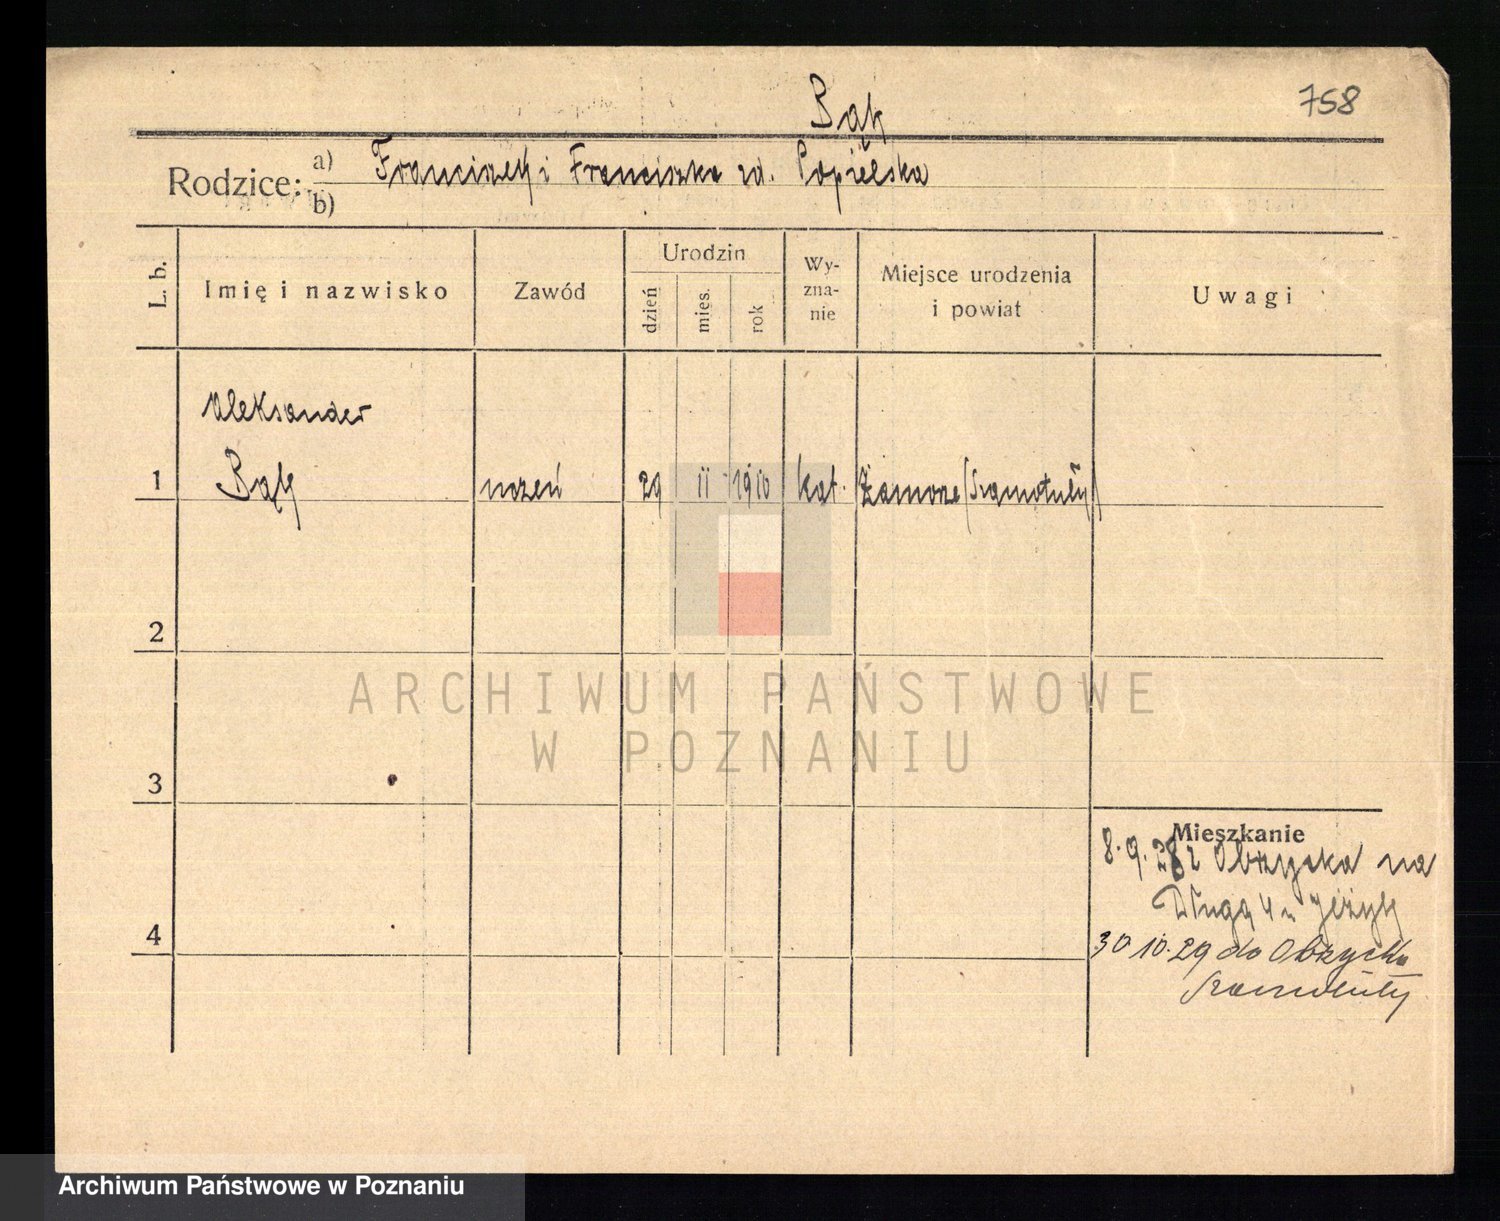 758
Bąk
Rodzice: a) Franciszek i Franciszka zd. Popielska
b)
L. b.
Imię i nazwisko
Zawód
Urodzin
dzień
mies.
rok
Wy-
zna-
nie
Miejsce urodzenia
i powiat
Uwagi
Aleksander
1 Bąk uczeń 29 II 1910 kat. Zamorze (Szamotuły)
2
3
4
Mieszkanie
8.9.28 z Obrzycka na
Długą 4 u
30.10.29 do Obrzycka
Szamotuły
ARCHIWUM PAŃSTWOWE
W POZNANIU
Archiwum Państwowe w Poznaniu